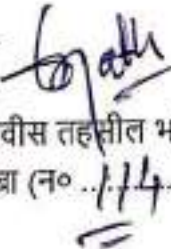 वीस तहसील भ
वा (न० ..114..